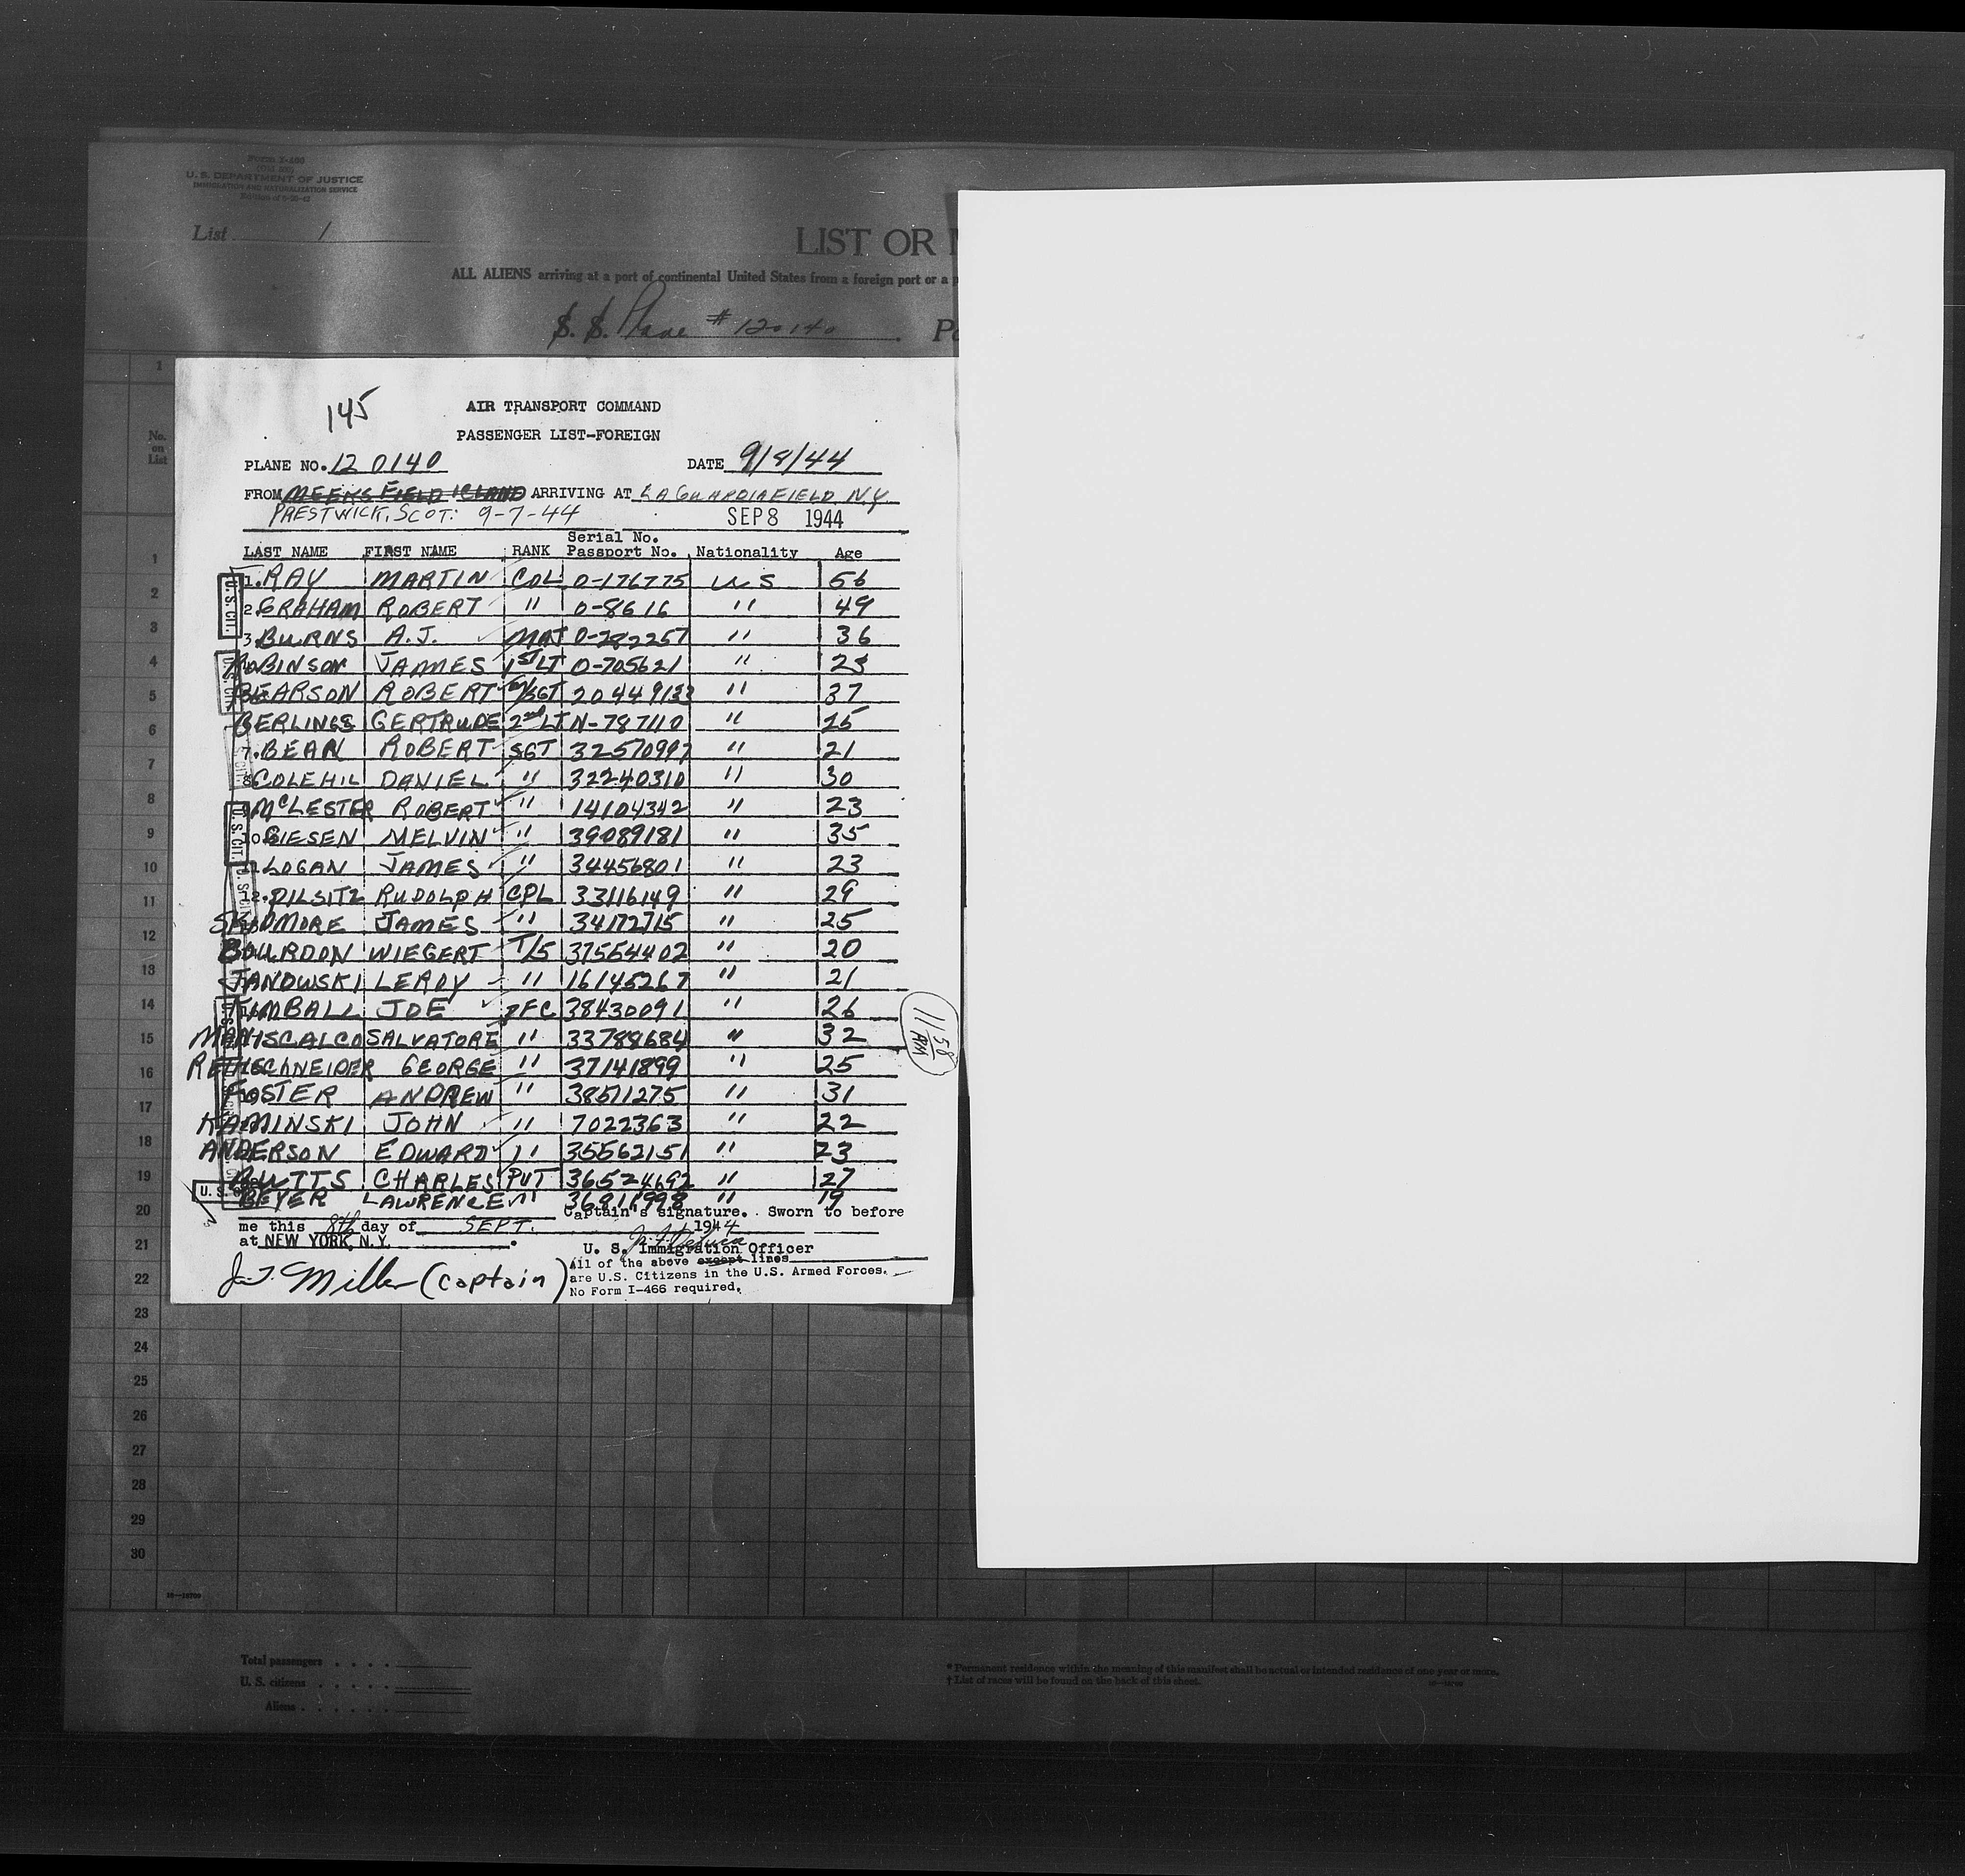 Form I-466
U. S. DEPARTMENT OF JUSTICE
IMMIGRATION AND NATURALIZATION SERVICE
List 1
LIST OR
ALL ALIENS arriving at a port of continental United States from a foreign port or a
S. S. Plane # 120140
1
No. on List
145
AIR TRANSPORT COMMAND
PASSENGER LIST-FOREIGN
PLANE NO. 120140 DATE 9/8/44
FROM MEEKS FIELD ICLAND ARRIVING AT LA GUARDIA FIELD N.Y.
PRESTWICK, SCOT: 9-7-44 SEP 8 1944
LAST NAME FIRST NAME RANK Serial No. Passport No. Nationality Age
1. RAY MARTIN COL 0-176775 US 56
2. GRAHAM ROBERT " 0-8616 " 49
3. BURNS A.J. MAJ 0-282257 " 36
ROBINSON JAMES 1ST LT 0-705621 " 23
PEARSON ROBERT M/SGT 20449133 " 37
BERLINGS GERTRUDE 2nd LT N-787110 " 25
7. BEAN ROBERT SGT 32570997 " 21
8 COLEHIL DANIEL " 32240310 " 30
9 McLESTER ROBERT " 14104342 " 23
10. GIESEN MELVIN " 39089181 " 35
11. LOGAN JAMES " 34456801 " 23
12. PILSITZ RUDOLPH CPL 33116149 " 29
SKIDMORE JAMES " 34172715 " 25
BOURDON WIEGERT T/5 37554402 " 20
JANOWSKI LEROY " 16145267 " 21
KIMBALL JOE PFC 38430091 " 26
MANISCALCO SALVATORE " 33788684 " 32
RETHSCHNEIDER GEORGE " 37141899 " 25
FOSTER ANDREW " 38511275 " 31
KAMINSKI JOHN " 7022363 " 22
ANDERSON EDWARD " 35562151 " 23
BUTTS CHARLES PVT 36524692 " 27
BEYER LAWRENCE " 36811998 " 19
Captain's signature. Sworn to before
me this 8th day of SEPT. 1944
at NEW YORK, N.Y.
U. S. Immigration Officer
All of the above except lines
are U.S. Citizens in the U.S. Armed Forces.
No Form I-466 required.
J. T. Miller (Captain)
U.S. CIT.
U.S. CIT.
11 58 AM
1
2
3
4
5
6
7
8
9
10
11
12
13
14
15
16
17
18
19
20
21
22
23
24
25
26
27
28
29
30
Total passengers
U. S. citizens
Aliens
* Permanent residence within the meaning of this manifest shall be actual or intended residence of one year or more.
† List of races will be found on the back of this sheet.